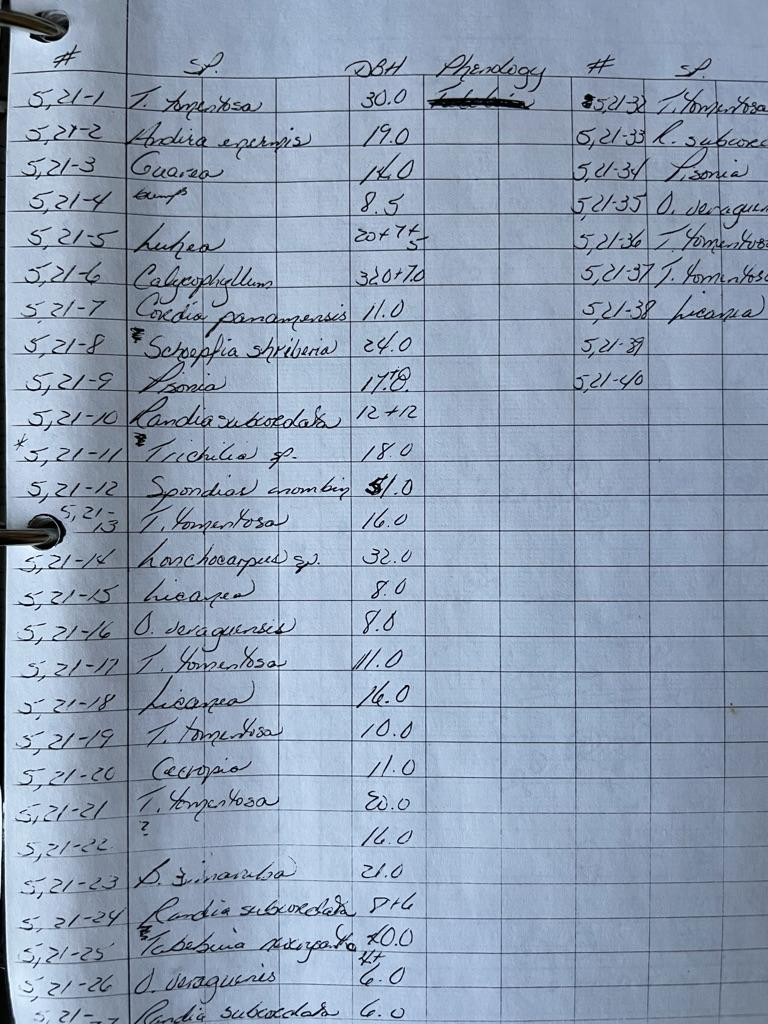 # SP. DBH Phenology # SP.
5,21-1 T. tomentosa 30.0 5,21-32 T. tomentosa
5,21-2 Andira enermis 19.0 5,21-33 R. subcored
5,21-3 Guarea 14.0 5,21-34 Pisonia
5,21-4 8.5 5,21-35 O. veraguen
5,21-5 Luhea 20+7+5 5,21-36 T. tomentosa
5,21-6 Calycophyllum 320+70 5,21-37 T. tomentosa
5,21-7 Cordia panamensis 11.0 5,21-38 Licania
5,21-8 Schoepfia shriberia 24.0 5,21-39
5,21-9 Pisonia 5,21-40
5,21-10 Randia subcordata 12+12
*5,21-11 Trichilia sp. 18.0
5,21-12 Spondias mombin 51.0
5,21-13 T. tomentosa 16.0
5,21-14 Lonchocarpus sp. 32.0
5,21-15 Licania 8.0
5,21-16 O. veraguensis 8.0
5,21-17 T. tomentosa 11.0
5,21-18 Licania 16.0
5,21-19 T. tomentosa 10.0
5,21-20 Cecropia 11.0
5,21-21 T. tomentosa 20.0
5,21-22 ? 16.0
5,21-23 B. simaruba 21.0
5,21-24 Randia subcordata 8+6
5,21-25 Tabebuia 40.0
5,21-26 O. veraguensis 4+6.0
5,21- Randia subcordata 6.0